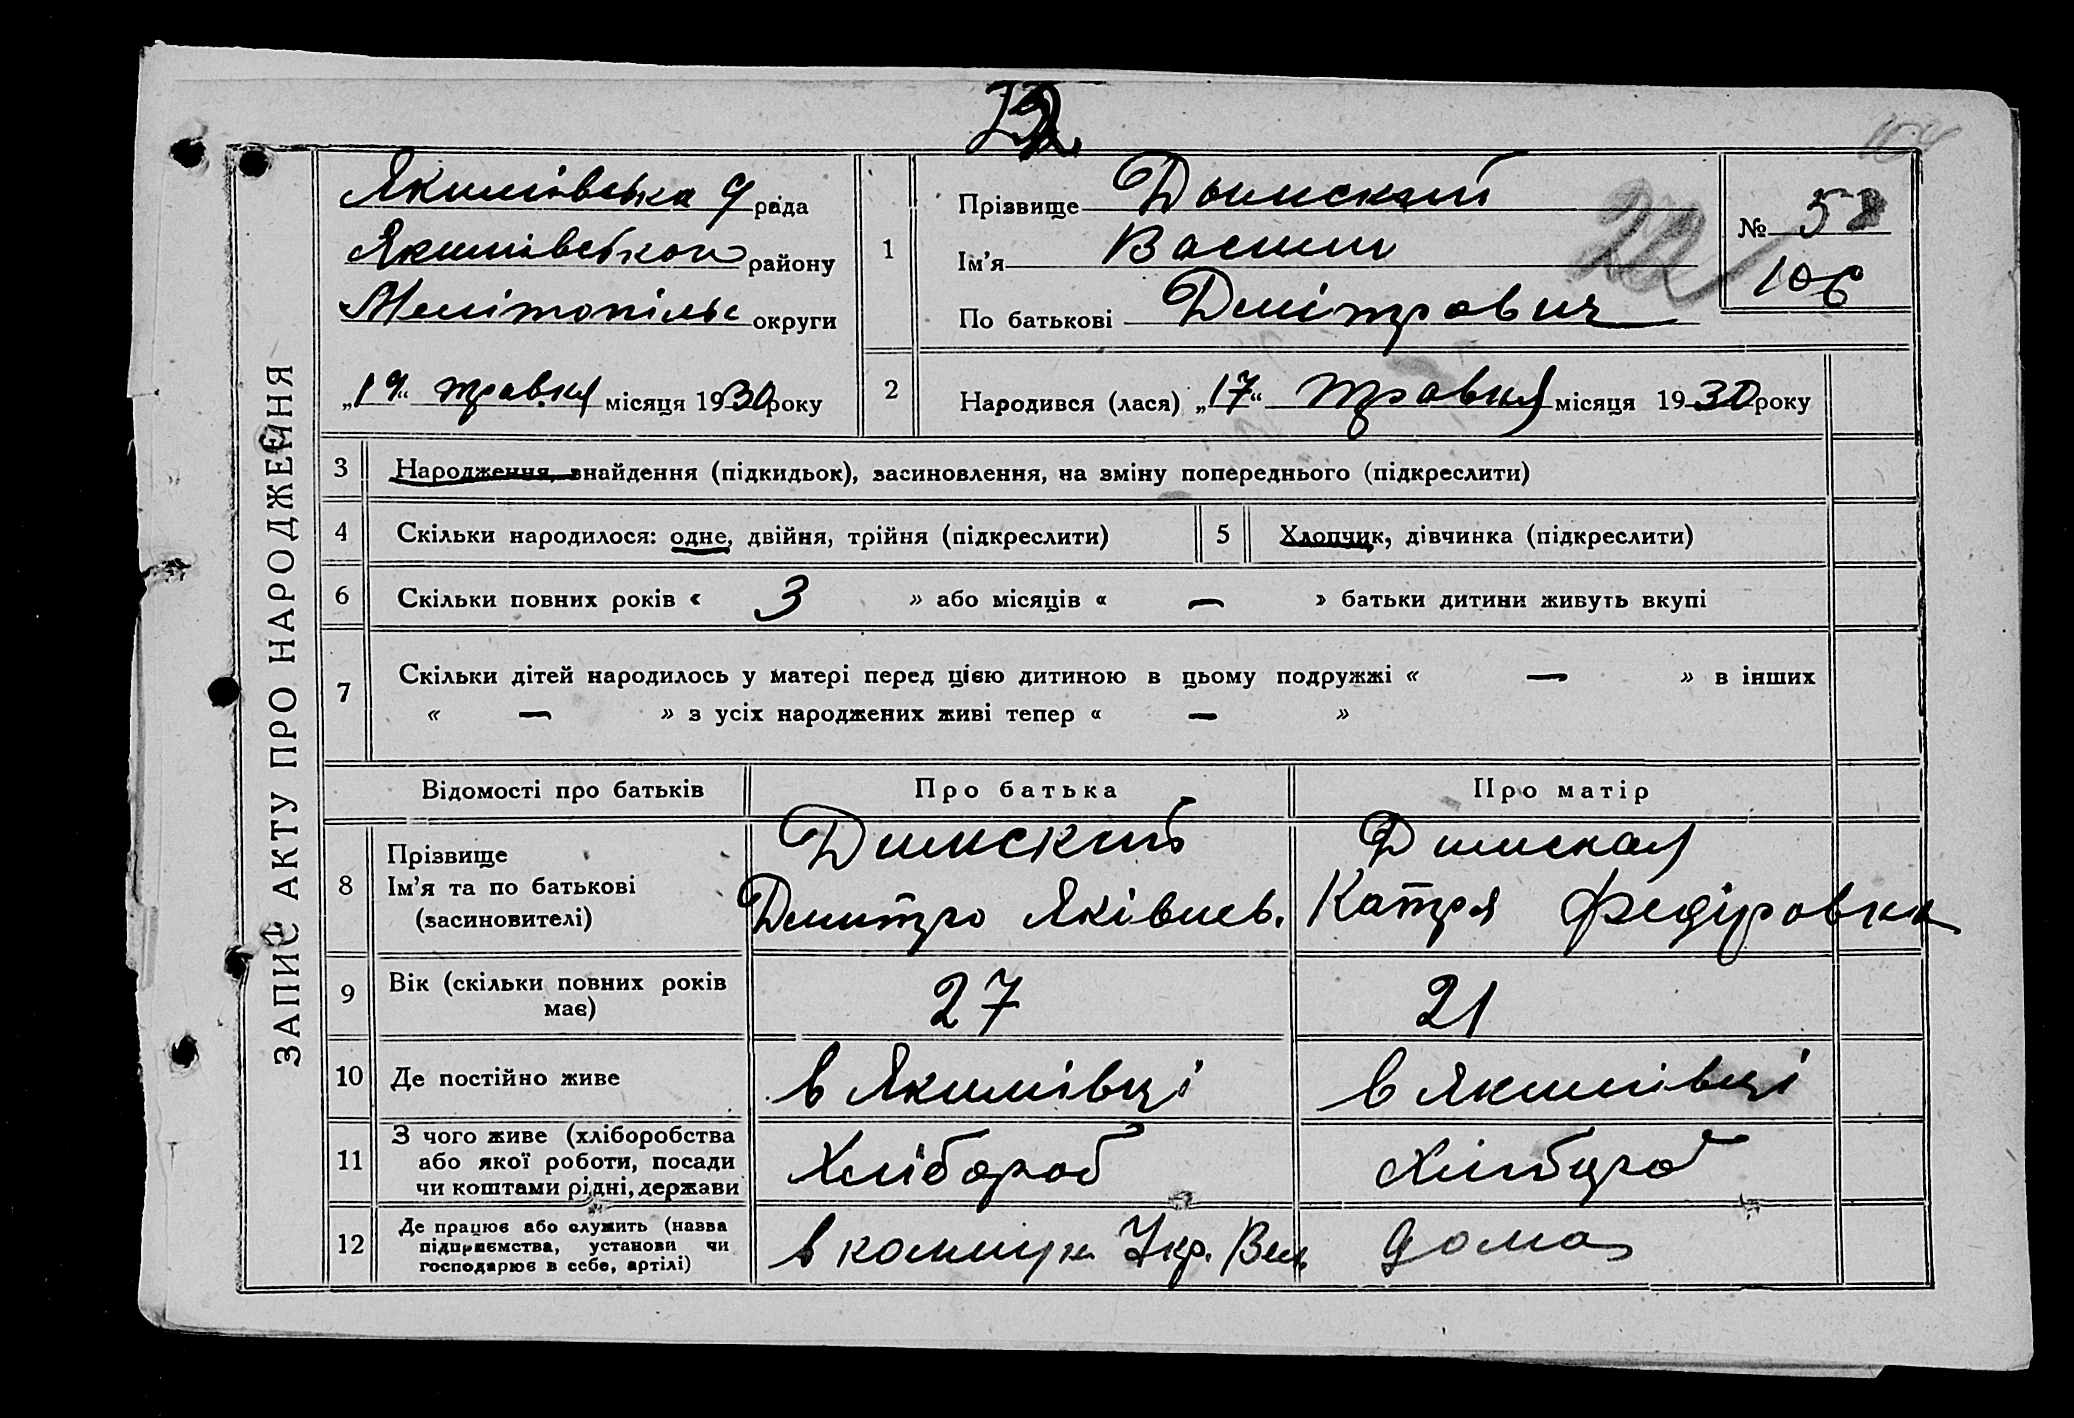 ЗАПИС АКТУ ПРО НАРОДЖЕННЯ
Якимівська рада
Якимівськои району
Мелітопільс округи
„19“ травня місяця 1930 року
1
Прізвище Дымский
Ім'я Васили
По батькові Дмітрович
№ 58
106
2 Народився (лася) „17“ травня місяця 1930 року
3 Народження, знайдення (підкидьок), засиновлення, на зміну попереднього (підкреслити)
4 Скільки народилося: одне, двійня, трійня (підкреслити) 5 Хлопчик, дівчинка (підкреслити)
6 Скільки повних років « 3 » або місяців « — » батьки дитини живуть вкупі
7 Скільки дітей народилось у матері перед цією дитиною в цьому подружжі « — » в інших
« — » з усіх народжених живі тепер « — »
Відомості про батьків Про батька Про матір
8 Прізвище
Ім'я та по батькові
(засиновителі)
Димский
Дмитро Яківлев.
Димская
Катря Федіровна
9 Вік (скільки повних років
має)
27 21
10 Де постійно живе в Якимівці в Якимівці
11 З чого живе (хліборобства
або якої роботи, посади
чи коштами рідні, держави
Хлібороб
12 Де працює або служить (назва
підприємства, установи чи
господарює в себе, артілі)
в комун Укр. Вел. дома